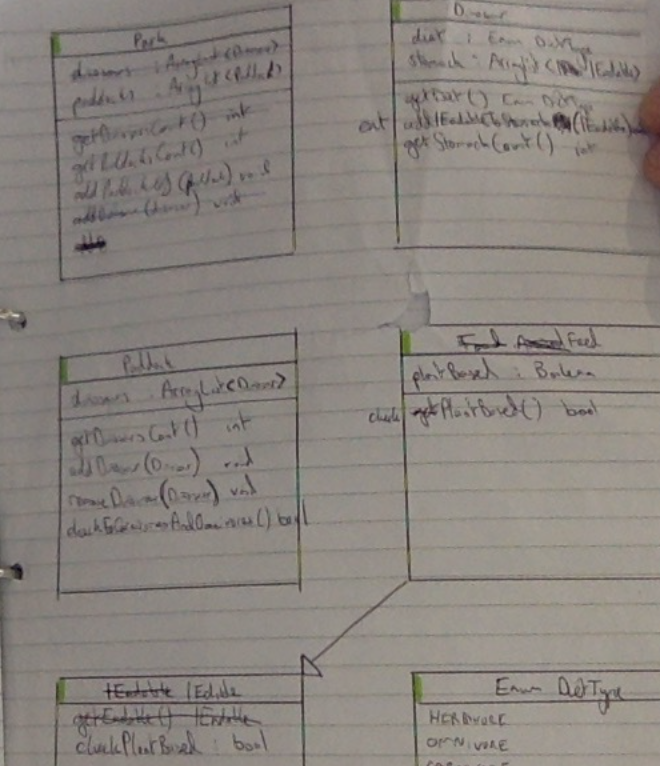 Park
dinosaurs : ArrayList<Dinosaur>
paddocks : ArrayList<Paddock>
getDinosaursCount() int
getPaddocksCount() int
addPaddock(paddock) void
addDinosaur(dinosaur) void
Dinosaur
diet : Enum DietType
stomach : ArrayList<IEdible>
getDiet() Enum DietType
eat
getStomachCount() int
Paddock
dinosaurs : ArrayList<Dinosaur>
getDinosaursCount() int
addDinosaur(Dinosaur) void
removeDinosaur(Dinosaur) void
bool
Food Feed
plantBased : Boolean
check getPlantBased() bool
IEdible
checkPlantBased : bool
Enum DietType
HERBIVORE
OMNIVORE